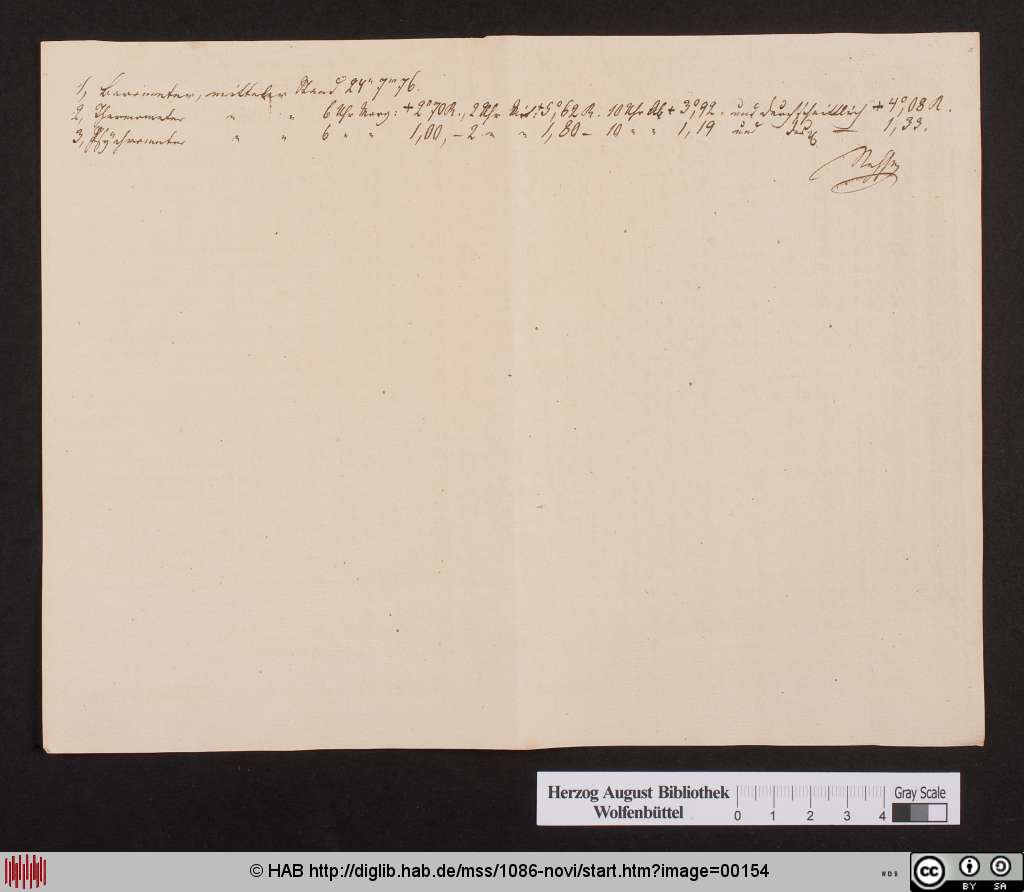 1, Barometer, mittlerer Stand 24" 7'" 76.
2, Thermometer " " 6 Uhr Morg: + 2°70 R., 2 Uhr Mit: + 5°,62 R. 10 Uhr Ab + 3°,92. und durchschnittlich + 4°,08 R.
3, Psÿchrometer " " 6 " " 1,00, – 2 " " 1,80 – 10 " " 1,19 und — 1,33.
Herzog August Bibliothek
Wolfenbüttel
0 1 2 3 4
Gray Scale
© HAB http://diglib.hab.de/mss/1086-novi/start.htm?image=00154
WDB
cc BY SA